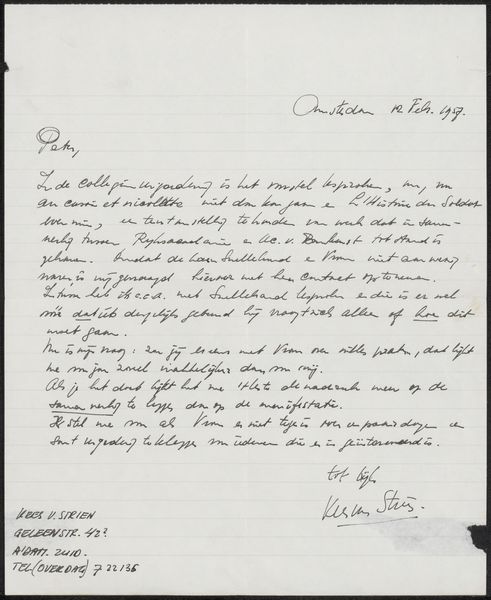 Amsterdam 12 Feb. 1957.
Peter,
In de collegevergadering is het voorstel besproken, nu
au cassin et nicolette niet door kan gaan en L'Histoire du Soldat
een tentoonstelling te houden van werk dat in samen-
werking tussen Rijksacademie en Ac. v. Bouwkunst tot stand is
gekomen. Omdat de heren Snellebrand en Vroom niet aanwezig
waren is mij gevraagd hierover met hen contact op te nemen.
Intussen heb ik e.e.a. met Snellebrand besproken en die is er wel
vóór dat iets dergelijks gebeurd hij vraagt zich alleen af hoe dit
moet gaan.
Nu is mijn vraag: zou jij er eens met Vroom over willen praten, dat lijkt
me voor jou zoveel makkelijker dan voor mij.
Als je het doet lijkt het me 't beste de nadruk meer op de
samenwerking te leggen dan op de manifestatie.
Ik stel me voor als Vroom er niet tegen is over een paar dagen een
soort vergadering te beleggen voor iedereen die er in geïnteresseerd is.
tot kijk
Kees van Strien.
KEES V. STRIEN
GELEENSTR. 42²
A'DAM. ZUID.
TEL (OVERDAG) 722136